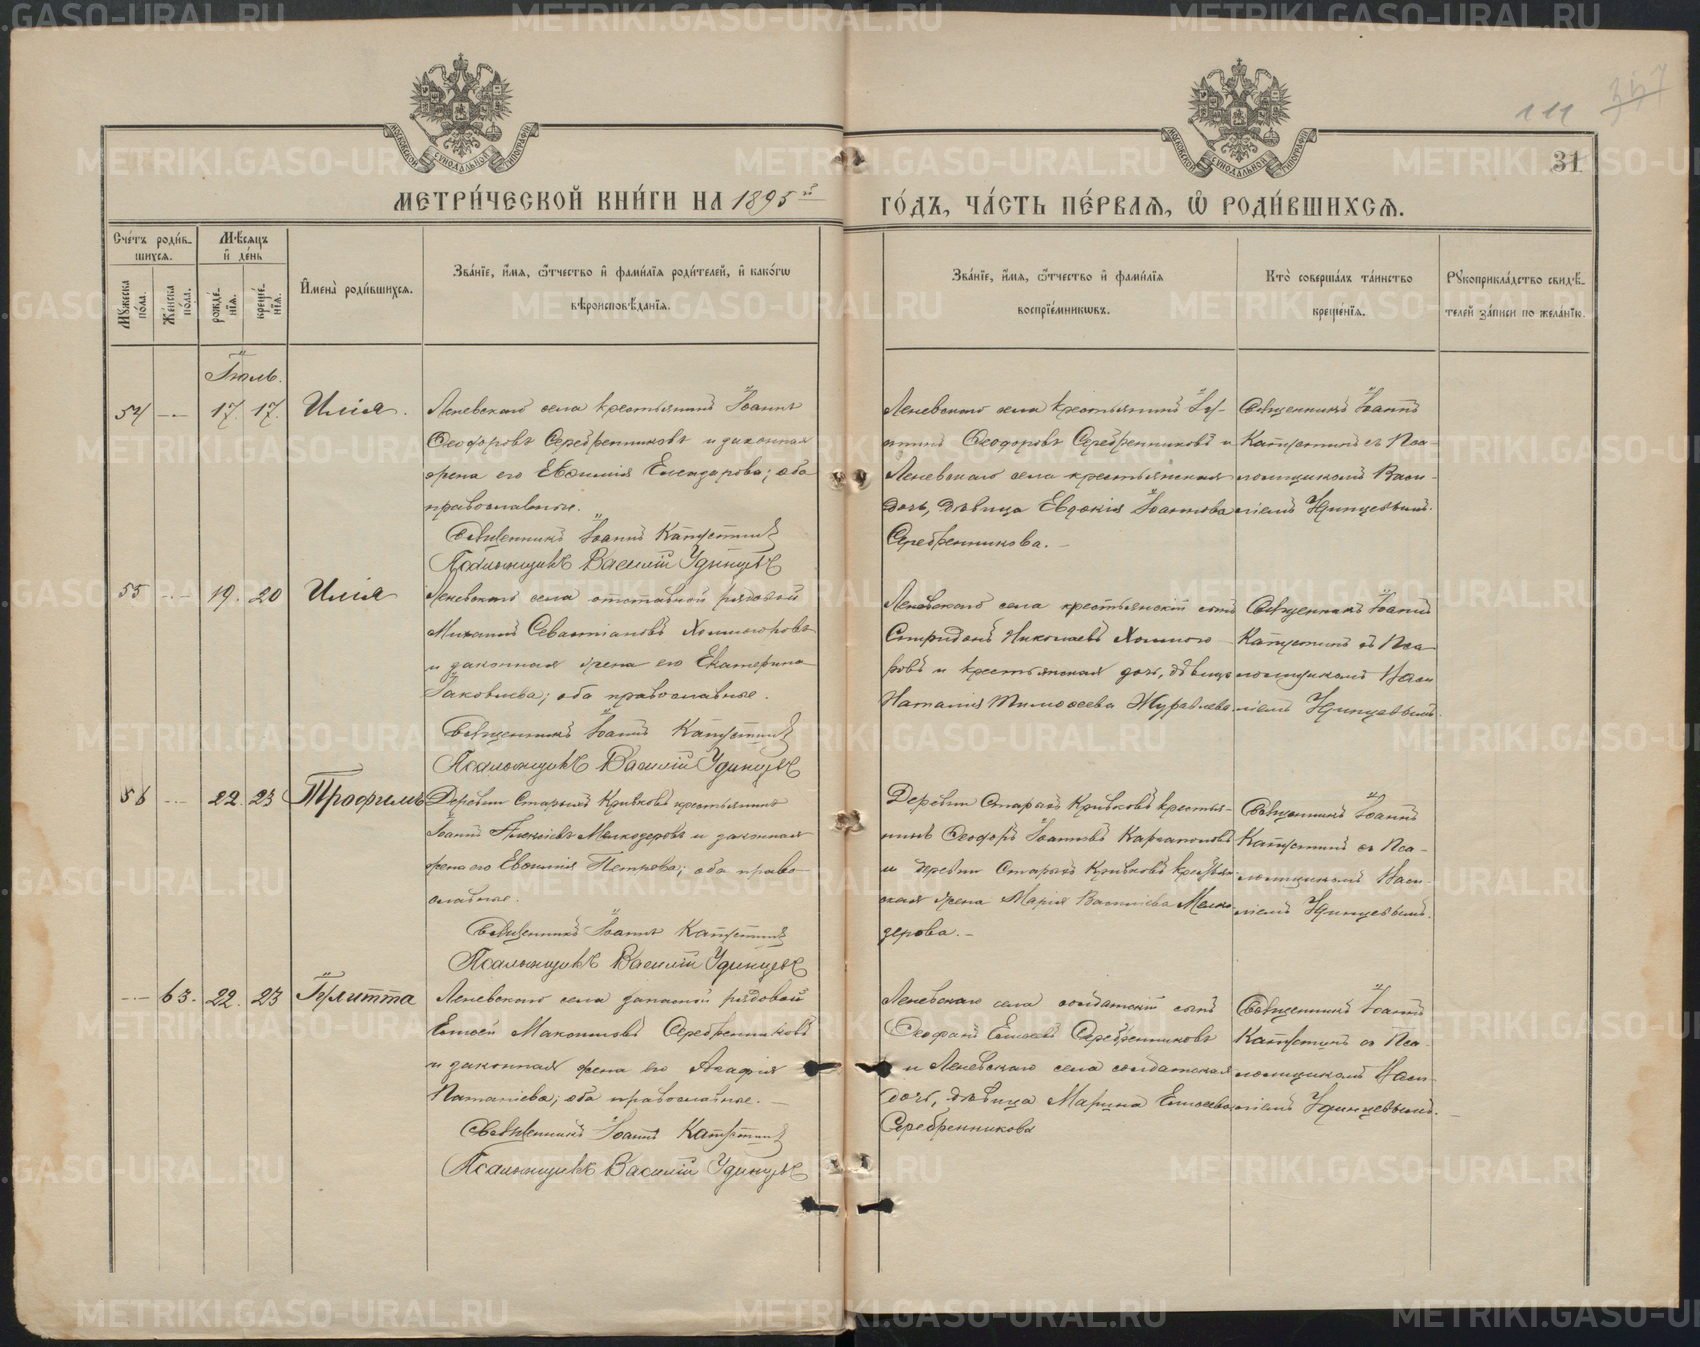 METRIKI.GASO-URAL.RU
111
357
31
МОСКОВСКОЙ СѴНОДАЛЬНОЙ ТИПОГРАФІИ
МЕТРИ́ЧЕСКОЙ КНИ́ГИ НА 1895й
ГО́ДЪ, ЧА́СТЬ ПЕ́РВАѦ, Ѡ҆ РОДИ́ВШИХСѦ.
Сче́тъ роди́в-
шихсѧ.
Мѣ́сѧцъ
и҆ де́нь
Мꙋ́жеска
по́ла.
Же́нска
по́ла.
рожде́-
нїѧ.
креще́-
нїѧ.
И҆мена̀ роди́вшихсѧ.
Зва́нїе, и҆́мѧ, ѻ҆́тчество и҆ фами́лїѧ роди́телей, и҆ како́гѡ
вѣроисповѣ́данїѧ.
Зва́нїе, и҆́мѧ, ѻ҆́тчество и҆ фами́лїѧ
воспрїе́мникѡвъ.
Кто̀ соверша́лъ та́инство
креще́нїѧ.
Рꙋкоприкла́дство свидѣ́-
телей за́писи по жела́нїю.
Іюль.
54 — 17. 17. Илія.
Леневскаго села крестьянинъ Іоаннъ
Ѳеодоровъ Серебренниковъ и законная
жена его Евѳимія Елеаздорова; оба
православные.
Священникъ Іоаннъ Капустинъ
Псаломщикъ Василій Удинцевъ
Леневскаго села крестьянинъ Іу-
стинъ Ѳеодоровъ Серебренниковъ и
Леневскаго села крестьянская
дочь, дѣвица Евдокія Іоаннова
Серебренникова. —
Священникъ Іоаннъ
Капустинъ съ Пса-
ломщикомъ Васи-
ліемъ Удинцевымъ.
55 — 19. 20 Илія
Леневскаго села отставной рядовой
Михаилъ Севастіановъ Холмогоровъ
и законная жена его Екатерина
Іаковлева; оба православные.
Священникъ Іоаннъ Капустинъ
Псаломщикъ Василій Удинцевъ
Леневскаго села крестьянскій сынъ
Спиридонъ Николаевъ Холмого-
ровъ и крестьянская дочь, дѣвица
Наталія Тимоѳеева Журавлева.
Священникъ Іоаннъ
Капустинъ съ Пса-
ломщикомъ Васи-
ліемъ Удинцевымъ.
56 — 22. 23 Трофимъ
Деревни Старыхъ Кривковъ крестьянинъ
Іоаннъ Алексіевъ Мелкозеровъ и законная
жена его Евѳимія Петрова; оба право-
славные.
Священникъ Іоаннъ Капустинъ
Псаломщикъ Василій Удинцевъ
Деревни Старыхъ Кривковъ крестья-
нинъ Ѳеодоръ Іоанновъ Каргаполовъ
и деревни Старыхъ Кривковъ крестьян-
ская жена Марія Васильева Мелко-
зерова. —
Священникъ Іоаннъ
Капустинъ съ Пса-
ломщикомъ Васи-
ліемъ Удинцевымъ.
— 63. 22. 23 Іулитта
Леневскаго села запасной рядовой
Елисей Максимовъ Серебренниковъ
и законная жена его Агафія
Ипатіева; оба православные. —
Священникъ Іоаннъ Капустинъ
Псаломщикъ Василій Удинцевъ
Леневскаго села солдатскій сынъ
Ѳеофанъ Елисеевъ Серебренниковъ
и Леневскаго села солдатская
дочь, дѣвица Марина Елисеева
Серебренникова
Священникъ Іоаннъ
Капустинъ съ Пса-
ломщикомъ Васи-
ліемъ Удинцевымъ.